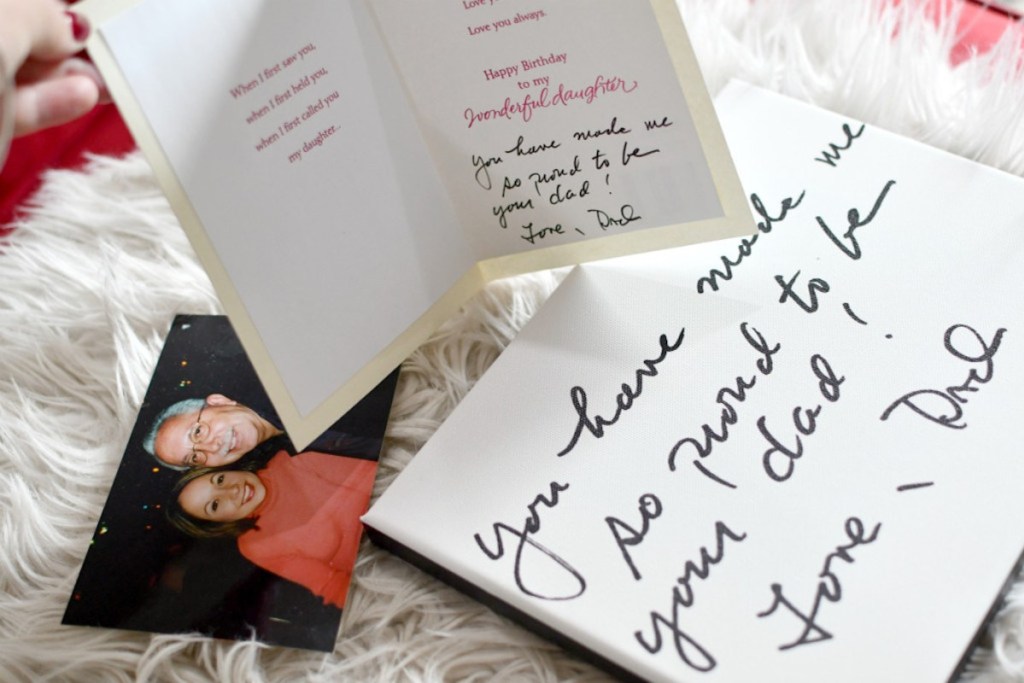 When I first saw you,
when I first held you,
when I first called you
my daughter...
Love you
Love you always.
Happy Birthday
to my
wonderful daughter
You have made me
so proud to be
your dad!
Love, Dad
You have made me
so proud to be
your dad!
Love, Dad